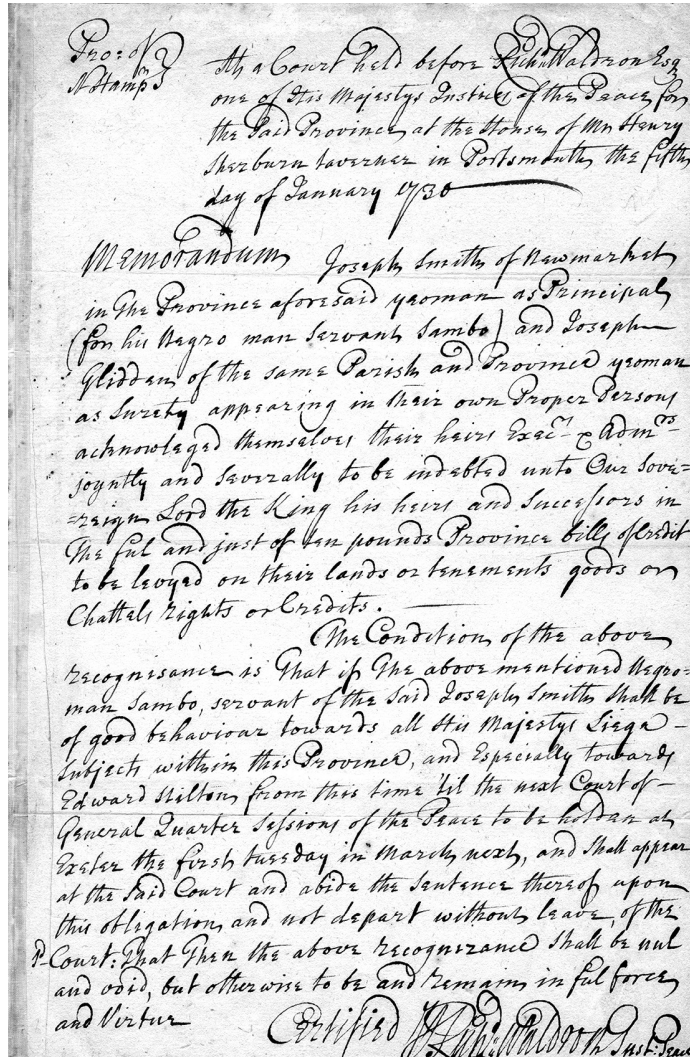 Pro: of
N Hamp:r
At a Court held before Richd Waldron Esq
one of His Majestys Justices of the Peace for
the Said Province, at the House of Mr Henry
Sherburn taverner in Portsmouth, the fifth
day of January 1730
Memorandum Joseph Smith of Newmarket
in The Province aforesaid yeoman as Principal
(for his Negro man Servant Sambo) and Joseph
Glidden of the same Parish and Province yeoman
as Surety appearing in their own Proper Persons
acknowleged themselves their heirs Execrs & Admrs
joyntly and severally to be indebted unto Our Sove=
=reign Lord the King his heirs and Successors in
The ful and just of ten pounds Province bills of Credit
to be levyed on their lands or tenements goods or
Chattels rights or Credits.
The Condition of the above
recognisance is That if The above mentioned Negro=
man Sambo, servant of the Said Joseph Smith Shall be
of good behaviour towards all His Majestys Liege
Subjects within this Province, and Especially towards
Edward from this time 'til the next Court of
General Quarter Sessions of the Peace to be holden at
Exeter the first tuesday in March next, and Shall appear
at the Said Court and abide the Sentence thereof upon
this obligation, and not depart without leave, of the
Sd Court: That Then the above recognizance Shall be nul
and void, but otherwise to be and remain in ful force
and Virtue
Certified Richd Waldron Just: Peace